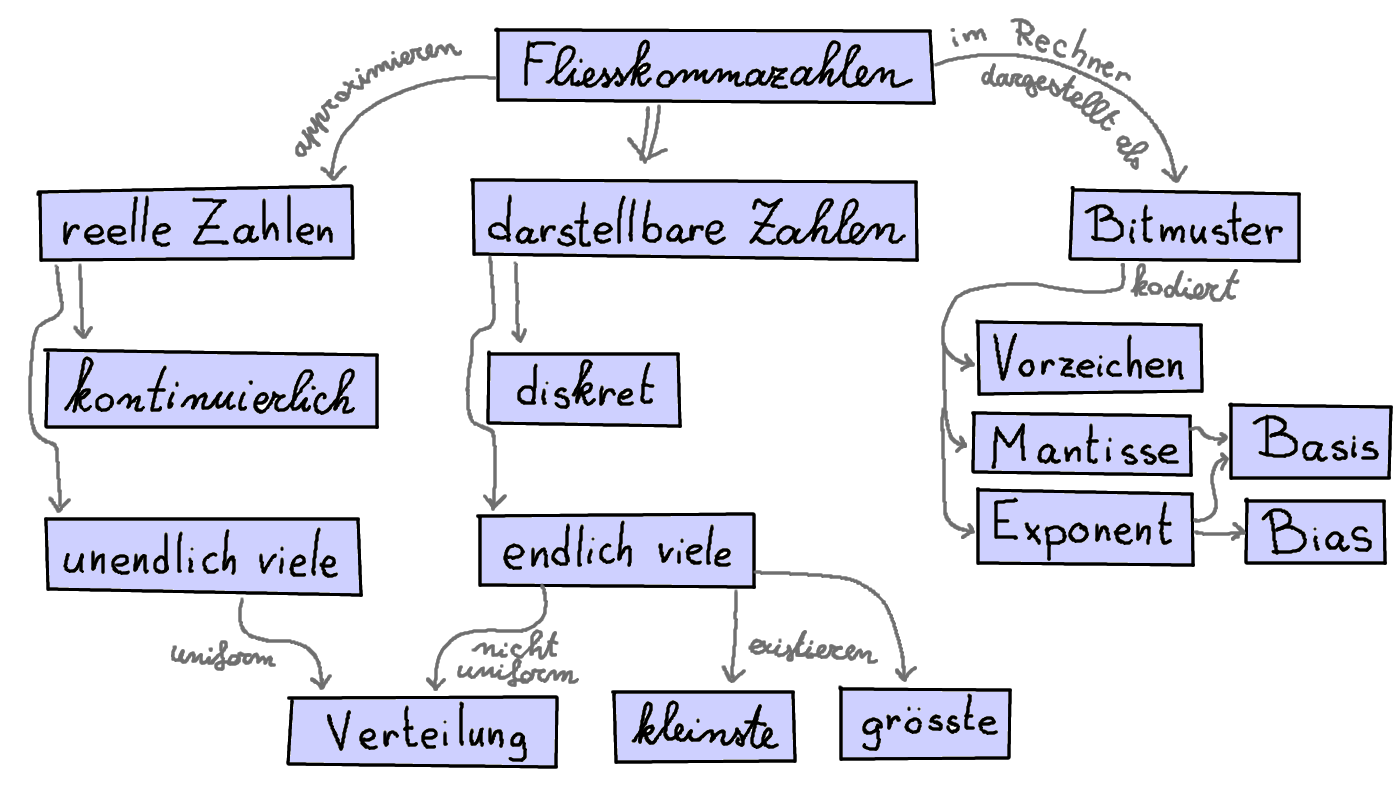 Fliesskommazahlen
approximieren
im Rechner
dargestellt als
reelle Zahlen
darstellbare Zahlen
Bitmuster
kodiert
kontinuierlich
diskret
Vorzeichen
Mantisse
Basis
Exponent
Bias
unendlich viele
endlich viele
uniform
nicht
uniform
existieren
Verteilung
kleinste
grösste